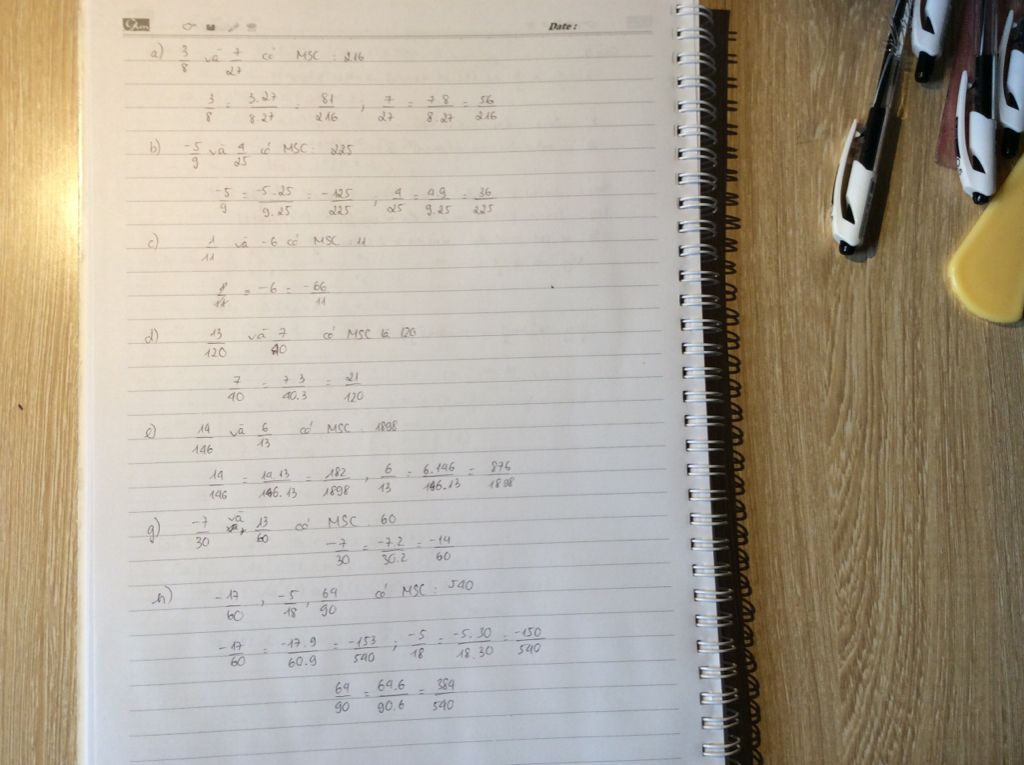 Date :
a) 3/8 và 7/27 có MSC : 216
3/8 = 3.27/8.27 = 81/216 , 7/27 = 7.8/8.27 = 56/216
b) -5/9 và 4/25 có MSC : 225
-5/9 = -5.25/9.25 = -125/225 , 4/25 = 4.9/9.25 = 36/225
c) 1/11 và -6 có MSC : 11
= -6 = -66/11
d) 13/120 và 7/40 có MSC là 120
7/40 = 7.3/40.3 = 21/120
e) 14/146 và 6/13 có MSC : 1898
14/146 = 14.13/146.13 = 182/1898 , 6/13 = 6.146/146.13 = 876/1898
g) -7/30 và 13/60 có MSC : 60
-7/30 = -7.2/30.2 = -14/60
h) -17/60 , -5/18 , 64/90 có MSC : 540
-17/60 = -17.9/60.9 = -153/540 ; -5/18 = -5.30/18.30 = -150/540
64/90 = 64.6/90.6 = 384/540